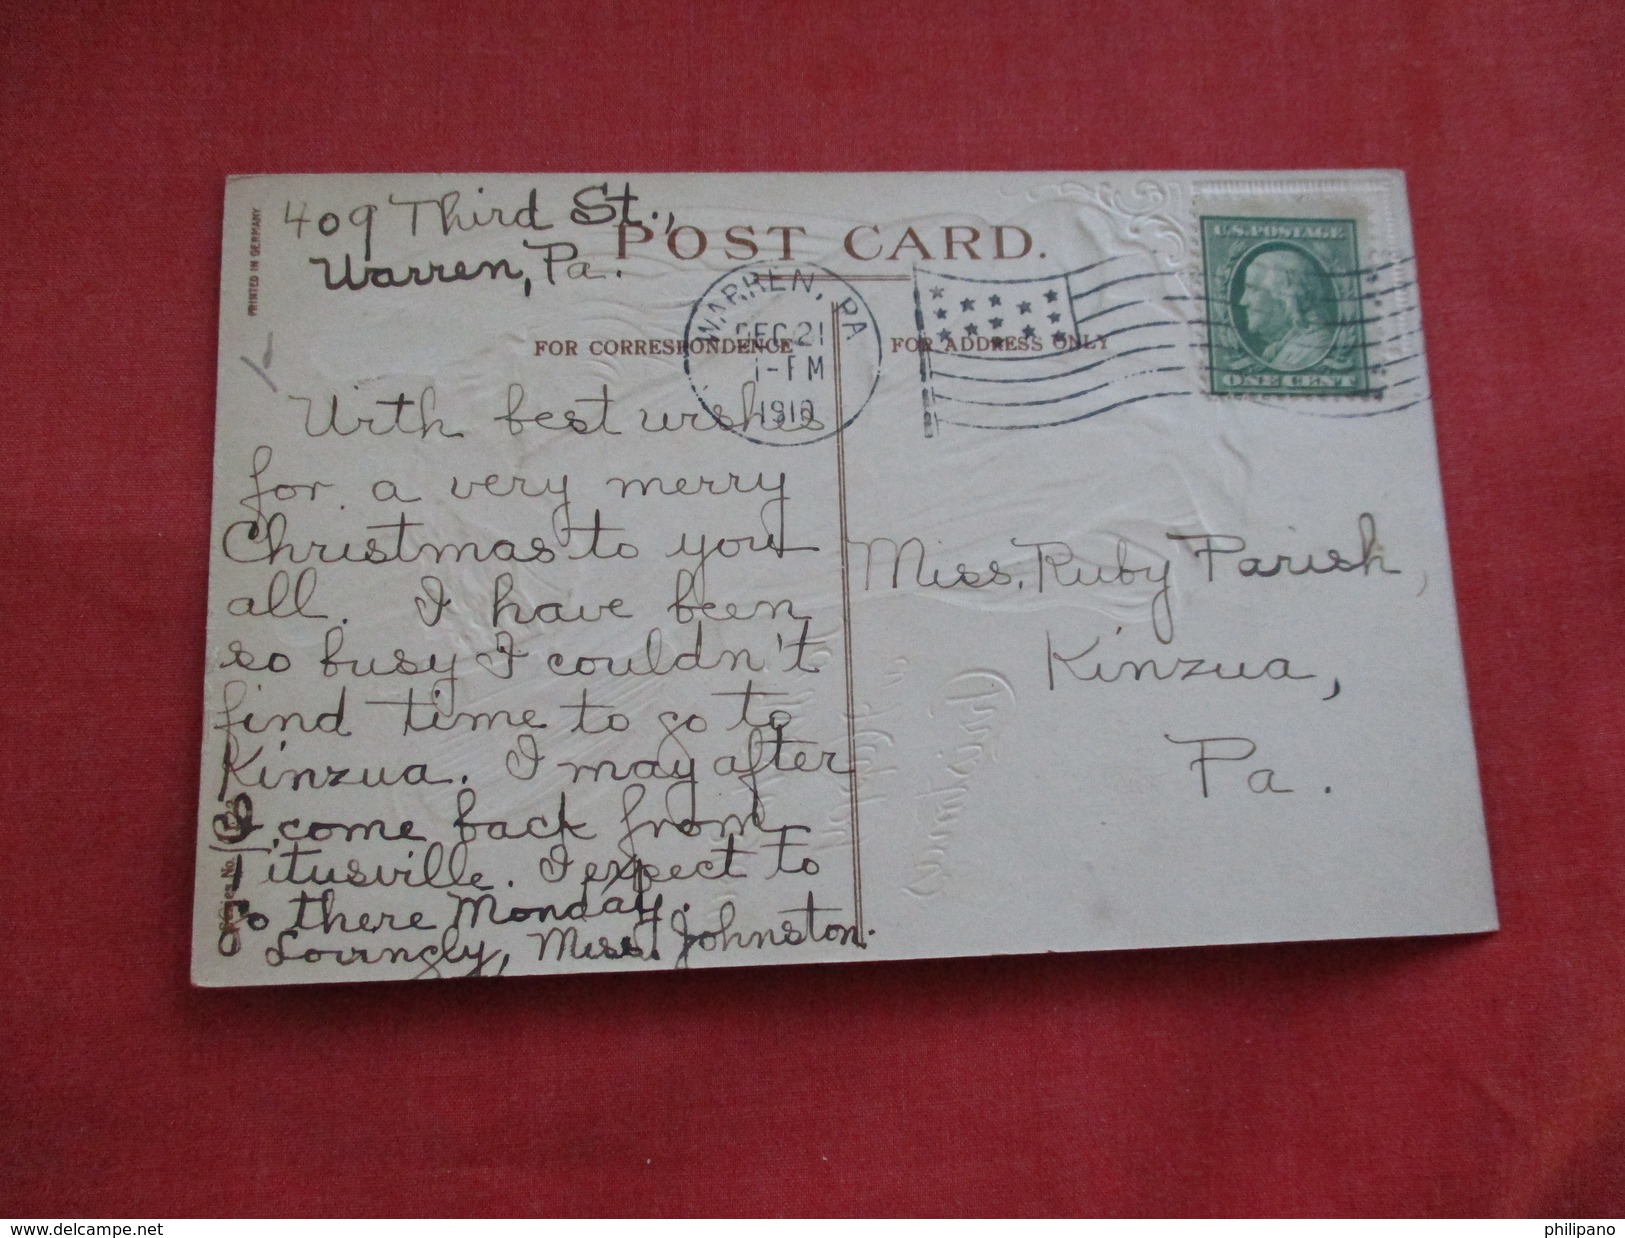 409 Third St.,
Warren, Pa.
POST CARD.
PRINTED IN GERMANY
FOR CORRESPONDENCE
FOR ADDRESS ONLY
WARREN, PA
DEC 21
1910
U.S. POSTAGE
ONE CENT
With best wishes
for a very merry
Christmas to you
all. I have been
so busy I couldn't
find time to go to
Kinzua. I may after
I come back from
Titusville. I expect to
go there Monday.
Lovingly, Miss Johnston.
Miss. Ruby Parish,
Kinzua,
Pa.
Series No.
www.delcampe.net
philipano